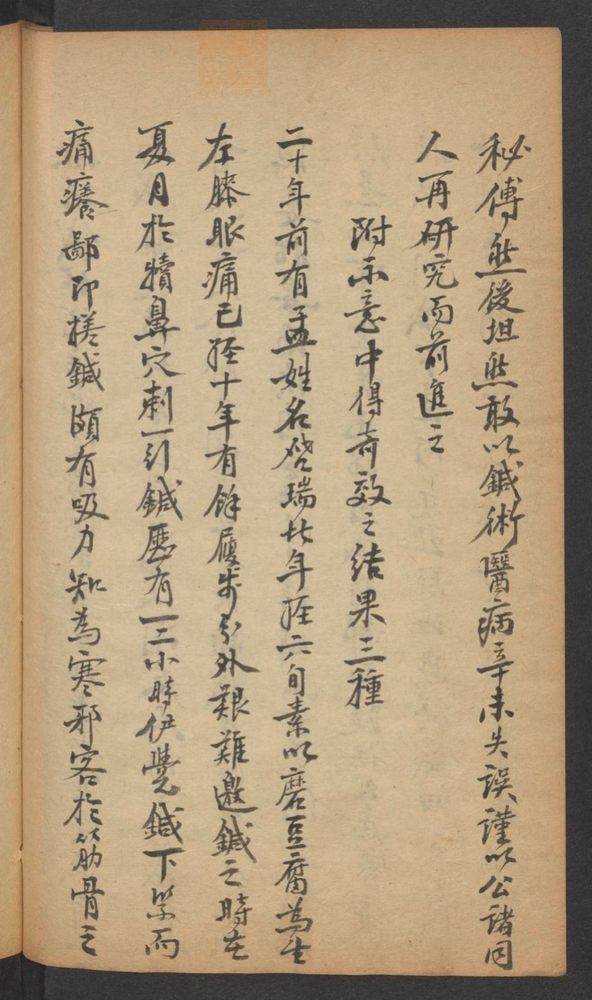 秘傳然後坦然敢以鍼術醫病幸未失誤謹以公諸同
人再研究而前進之
附示意中得奇效之結果三種
二十年前有孟姓名啓瑞此年在六旬素以磨豆腐為生
左膝眼痛已經十年有餘履步分外艱難邀鍼之時在
夏月於犢鼻穴刺一引鍼歷有一二小時伊覺鍼下緊而
痛癢鄙即搓鍼頗有吸力知為寒邪客於筋骨之